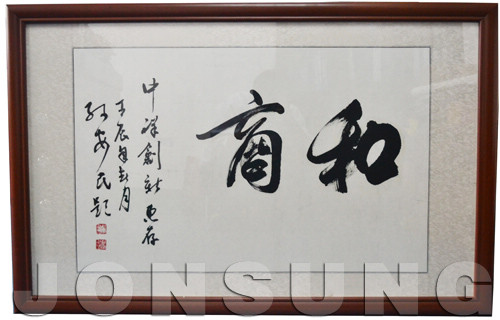 和商
中祥創新惠存
壬辰年秋月
孙安民题
JONSUNG